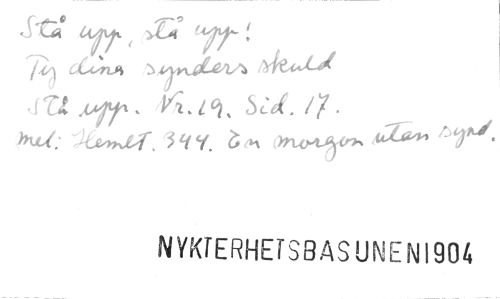 Stå upp, stå upp!
Ty dina synders skuld
Stå upp. Nr. 19. Sid. 17.
mel: Hemlt. 344. En morgon utan synd.
NYKTERHETSBASUNEN1904